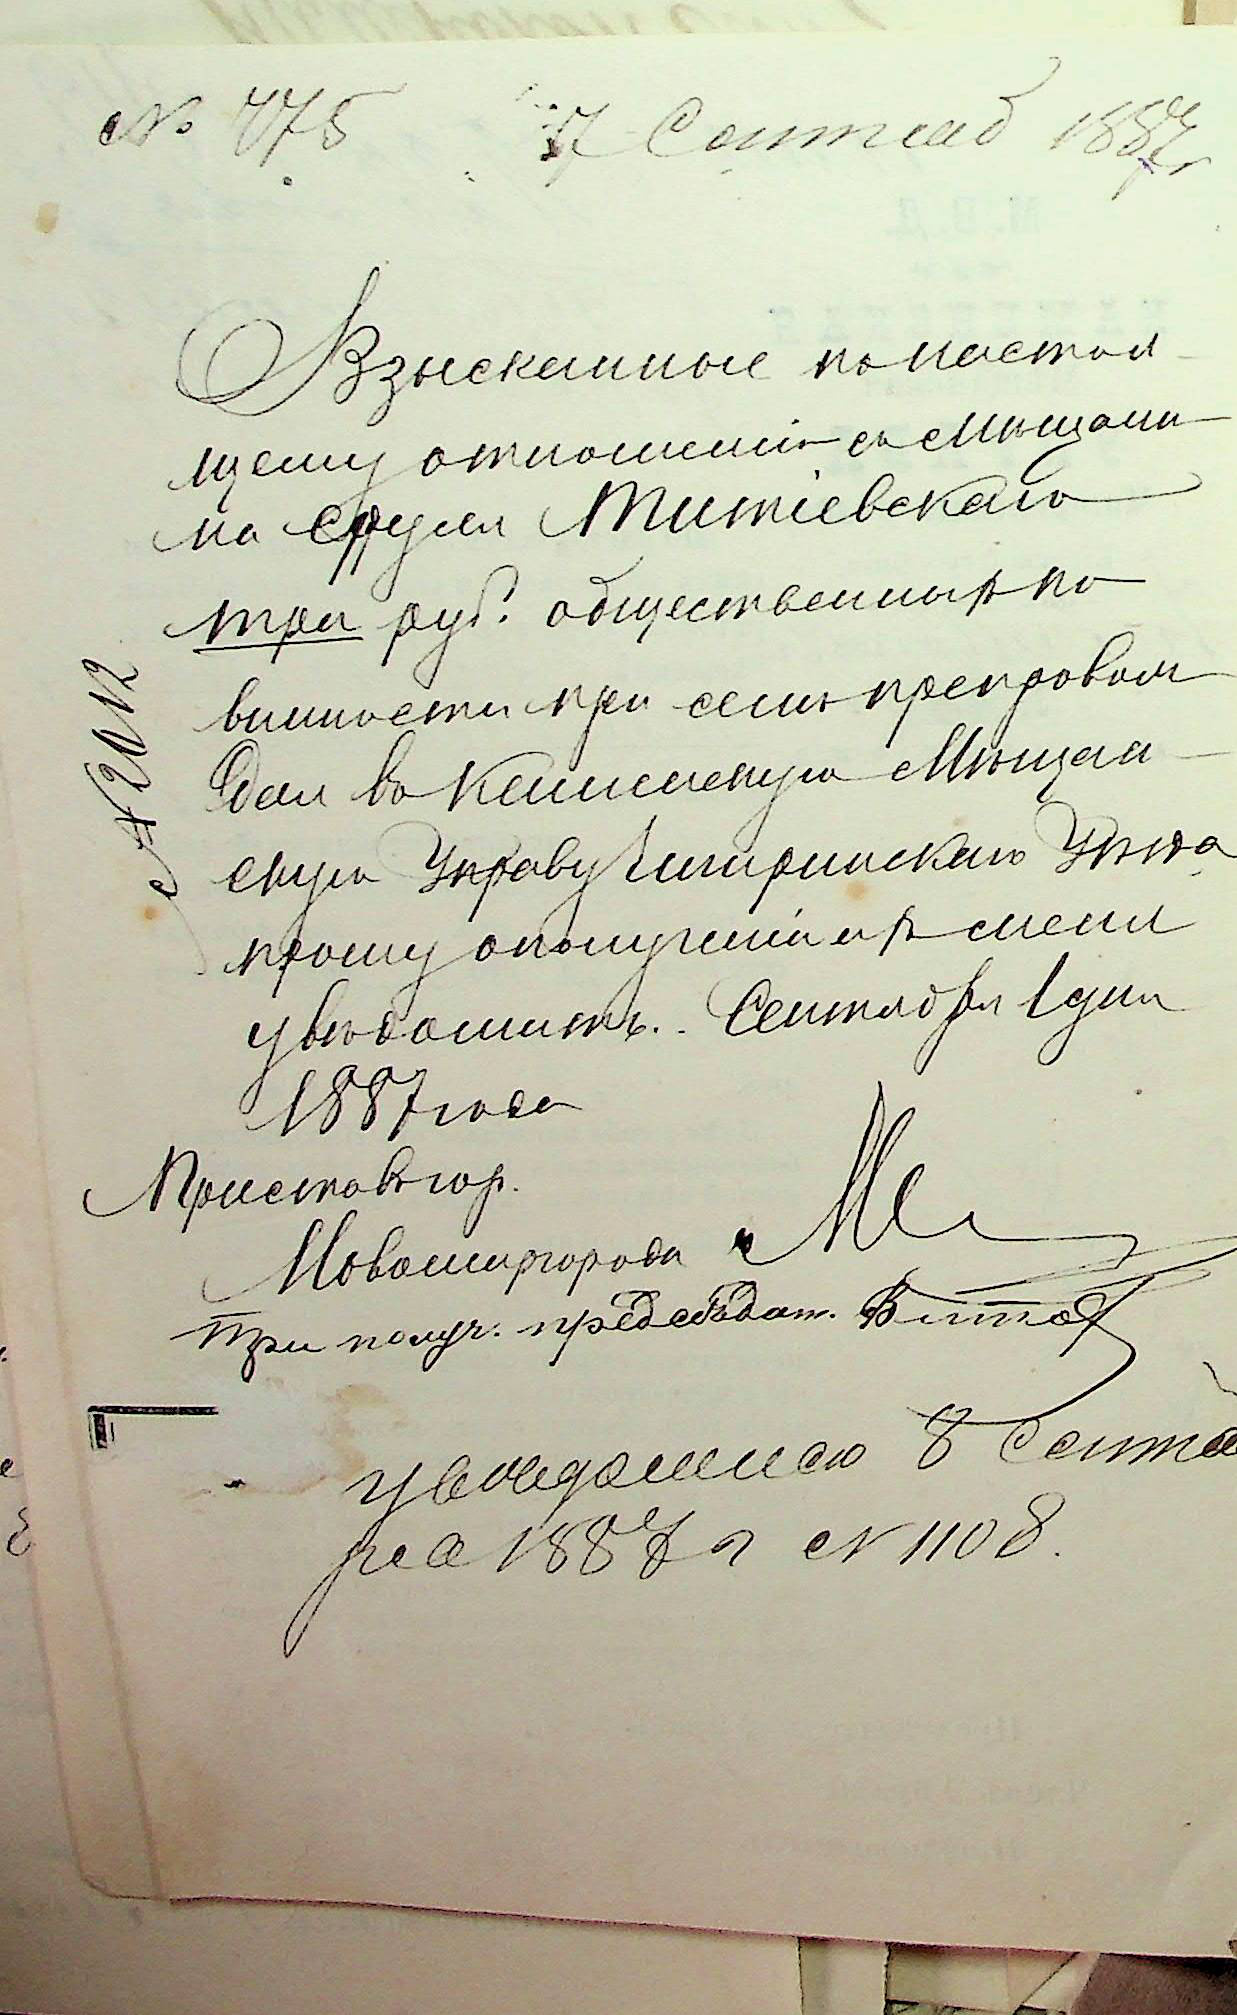 № 775 7 Сентяб 1887 г
Взысканные по настоя
щему отношенію съ Мѣщани
на Сруля Титіевскаго
три руб. общественныхъ по
винности при семъ препровож
даю въ Каменскую Мѣщан
скую Управу Чигиринскаго Уѣзда
прошу о полученіи ихъ меня
увѣдомить. Сентября 1 дня
1887 года
Приставъ гор.
Новомиргорода
Три получ. председат.
№ 2012
уведомлено 8 Сентяб
ра 1887 г № 1108.